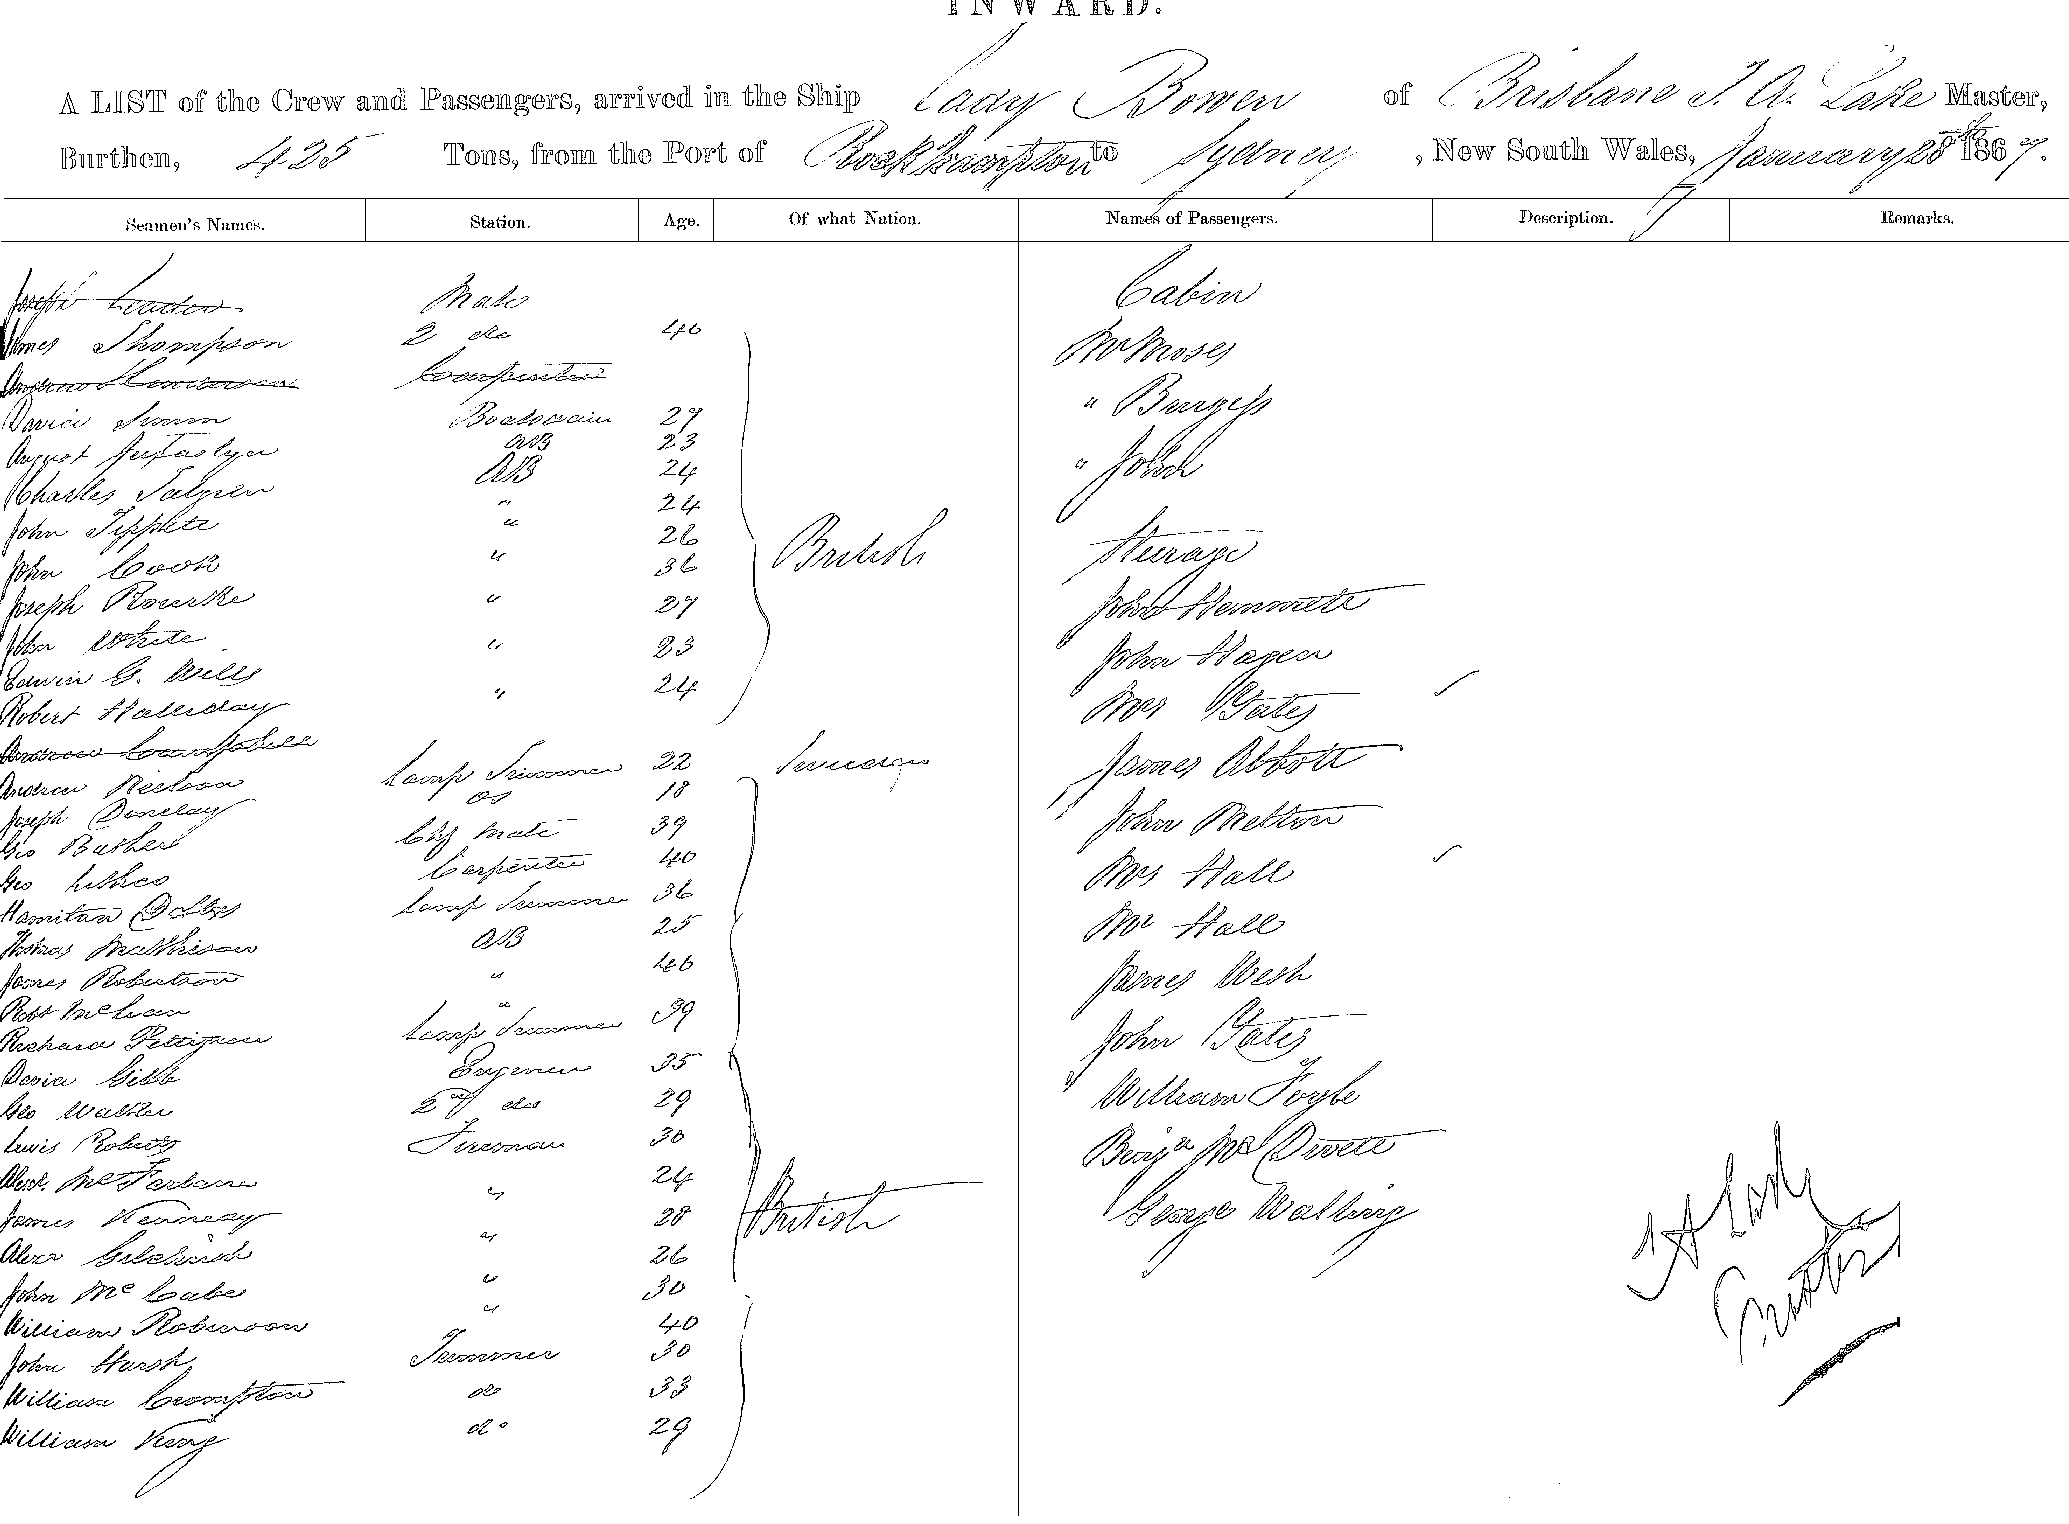 INWARD.
A LIST of the Crew and Passengers, arrived in the Ship Lady Bowen of Brisbane J. A. Lake Master,
Burthen, 425 Tons, from the Port of Rockhampton to Sydney, New South Wales, January 28th 1867.
Seamen's Names. Station. Age. Of what Nation. Names of Passengers. Description. Remarks.
Joseph Mate Cabin
James Thompson 2 do 46
Mr Moses
Carpenter
David Boatswain 27 " Burgess
August AB 23
Charles AB 24 " John
John Tippett " 24
John Cook " 26 British Steerage
Joseph Rourke " 36
John White " 27 John Hammett
Edwin G. Wills " 23 John Hagen
Robert Halliday " 24 Mrs Yates
Andrew
Andrew Neilson Lamp Trimmer 22 James Abbott
Joseph Dunclay OS 18
Geo Butherl Chf Mate 39 John Melton
Geo Lithco Carpenter 40 Mrs Hall
Hamilton Lamp Trimmer 36
Thomas Mathieson AB 25 Mr Hall
James Robertson " 46
Robt McLean " James West
Richard Pettigrew Lamp Trimmer 39 John Yates
David Gibb Engineer 35
Geo Walker 2nd do 29 William Foyle
Lewis Roberts Fireman 30 Benjn
Alexr. McFarlane " 24
James Kennedy " 28 British George Walling
Alexr Gilchrist " 26
John McCabe " 30
William Robinson 40
John Harsh Trimmer 30
William Crompton do 33
William King do 29